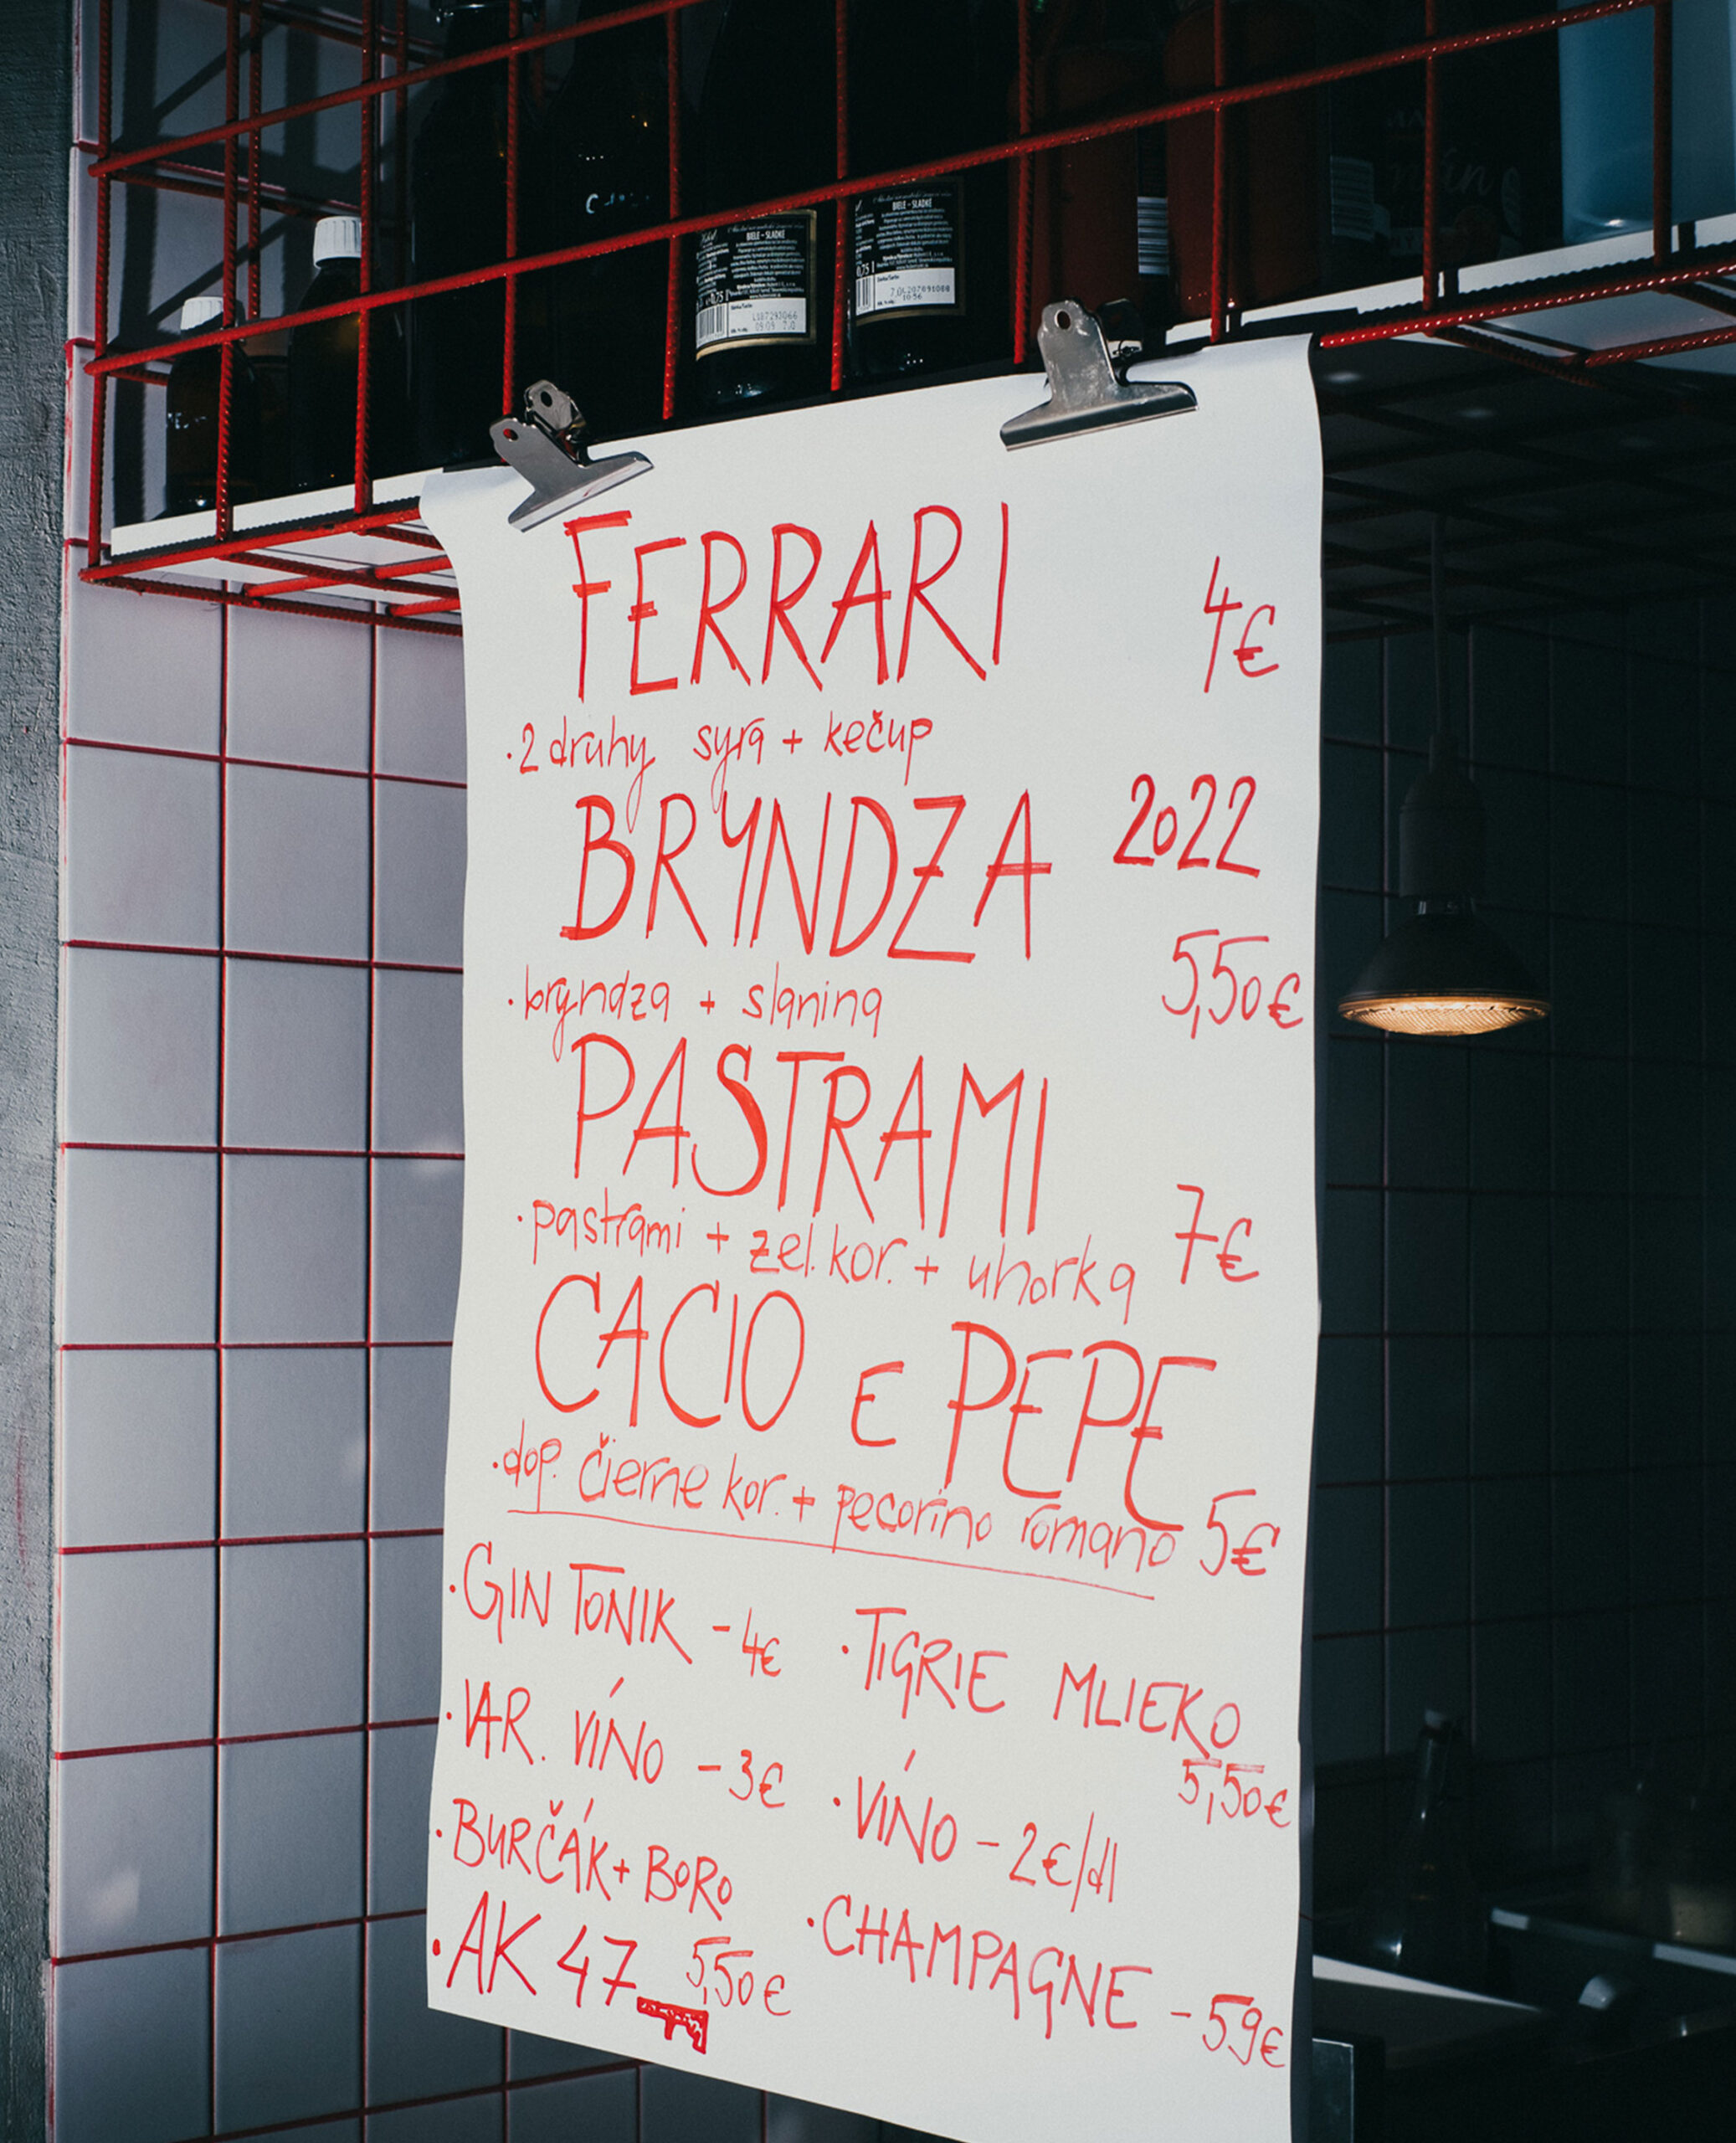 BIELE - SLADKÉ
BIELE - SLADKÉ
0,75 l
FERRARI 4€
·2 druhy syra + kečup
BRYNDZA 2022
·bryndza + slanina 5,50€
PASTRAMI
·pastrami + zel. kor. + uhorka 7€
CACIO e PEPE
·dop. čierne kor. + pecorino romano 5€
·GIN TONIK - 4€
·VAR. VÍNO - 3€
·BURČÁK + BORO
·AK 47 5,50€
·TIGRIE MLIEKO
5,50€
·VÍNO - 2€/dl
·CHAMPAGNE - 59€